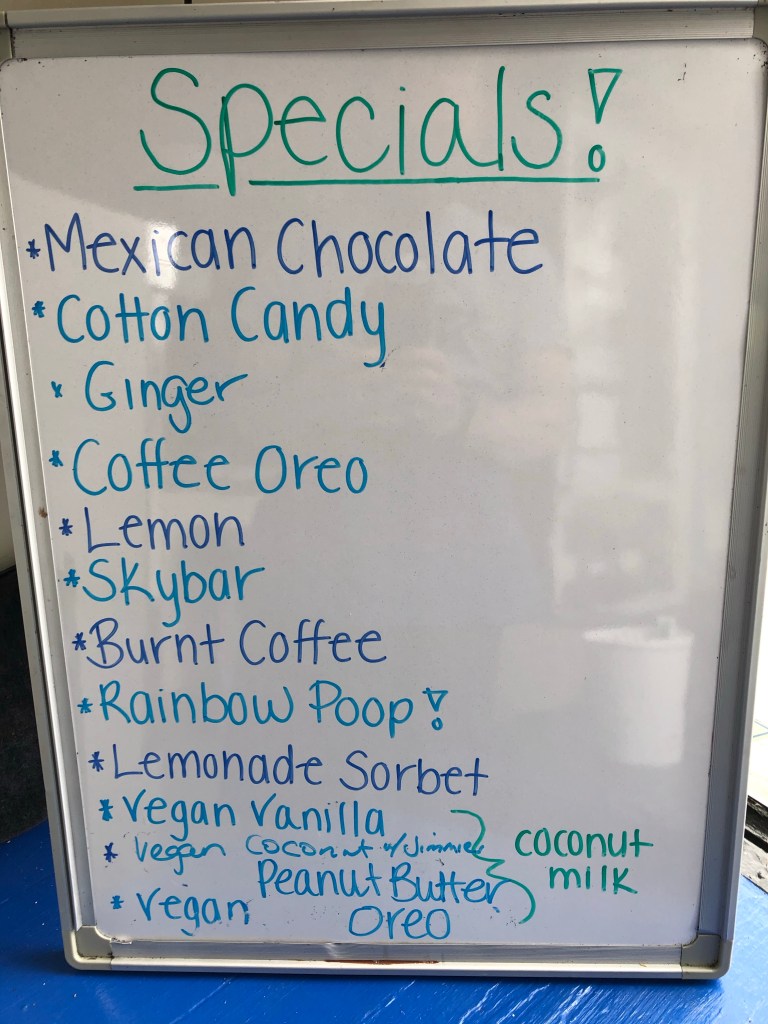 Specials!
*Mexican Chocolate
*Cotton Candy
*Ginger
*Coffee Oreo
*Lemon
*Skybar
*Burnt Coffee
*Rainbow Poop!
*Lemonade Sorbet
*Vegan Vanilla
*Vegan Coconut w/Jimmies
*Vegan Peanut Butter
Oreo
coconut
milk